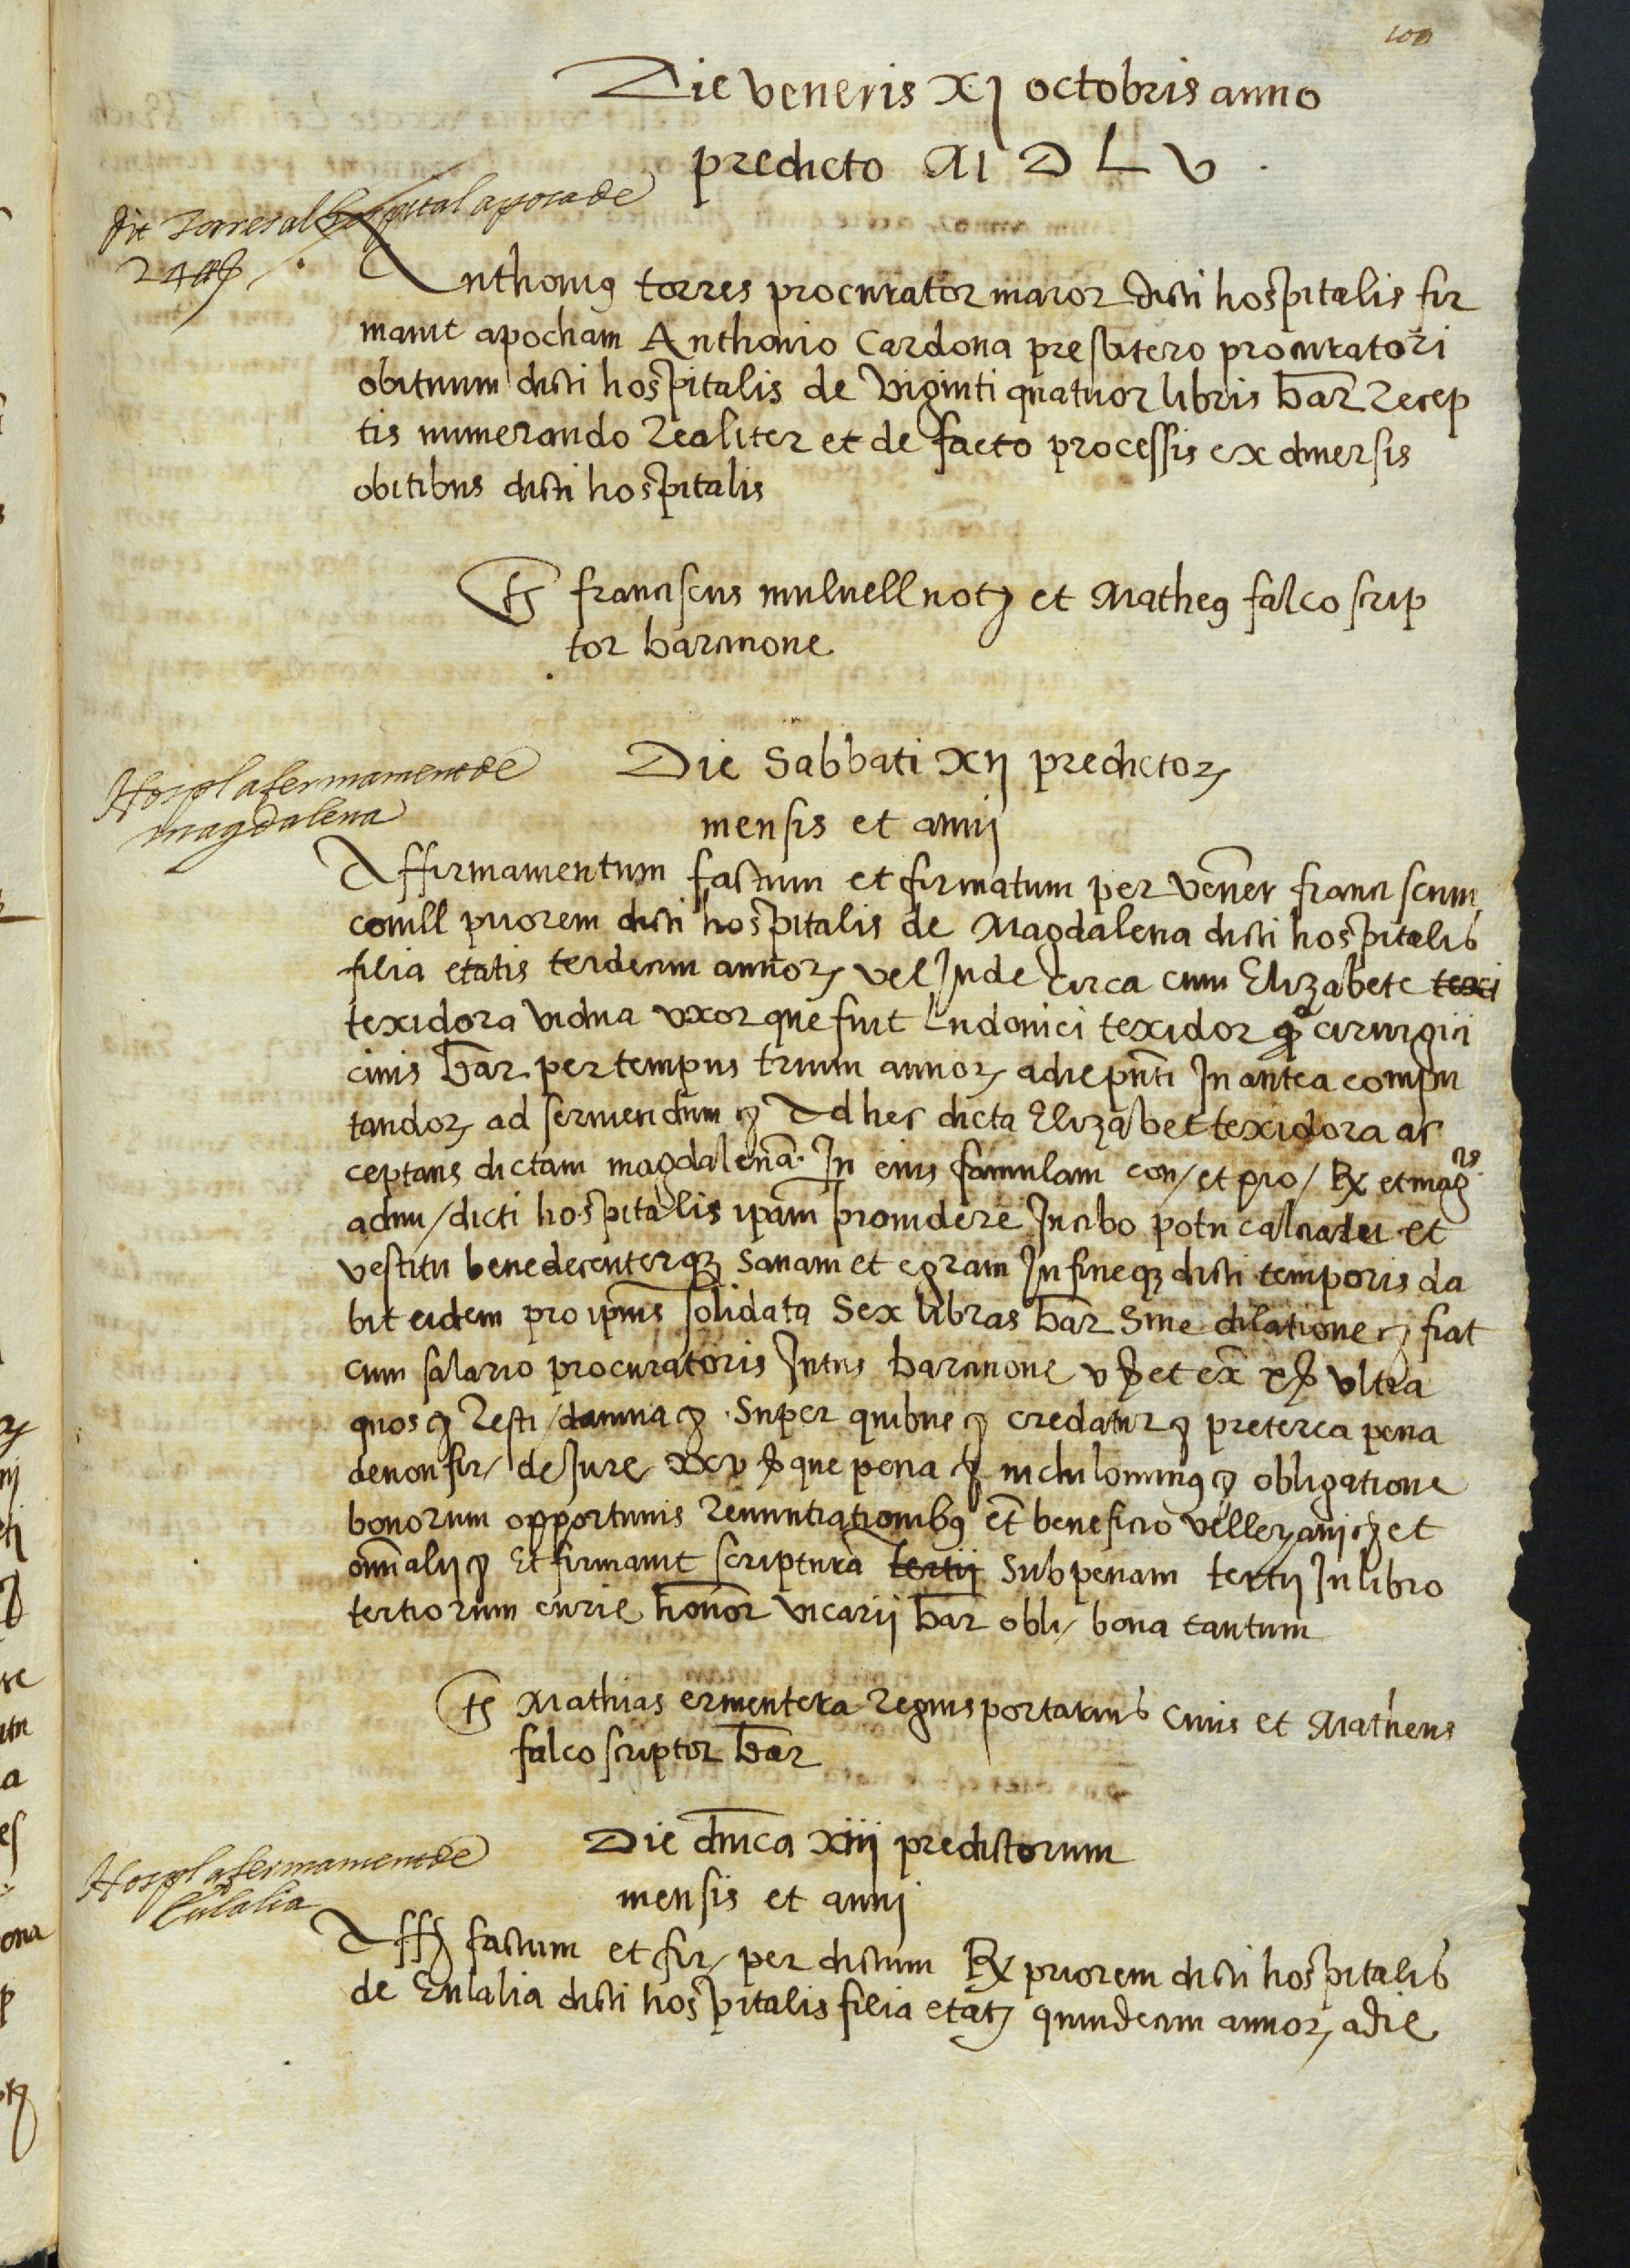 100
Die veneris XJ octobris anno
predicto M D L V
dit Torres al hospital apoca de
24 ₶
Anthoniꝰ torres procurator maior dicti hospitalis fir
mauit apocham Anthonio Cardona presbitero procuratori
obituum dicti hospitalis de viginti quatuor libris bar̄ recep
tis numerando realiter et de facto processis ex diuersis
obitibus dicti hospitalis
tꝭ franciscus muluell notꝭ et Matheꝰ falco scrip
tor barcinone
Die Sabbati XIJ predictoꝝ
mensis et annij
Hospl afermament de
magdalena
Affirmamentum factum et firmatum per vener̄ franciscum
conill priorem dicti hospitalis de Magdalena dicti hospitalis
filia etatis terdecim annoꝝ vel Inde circa cum Elizabete texi
texidora vidua vxor que fuit Ludouici texidor qº cirurgici
ciuis bar̄ per tempus trium annoꝝ a die pn̄ti In antea compu
tandoꝝ ad seruiendum ꝛ Ad hec dicta Elizabet texidora ac
ceptans dictam magdalenā In eius famulam con/ et pro/ Rx et magcis
adm/ dicti hospitalis ipām prouidere In cibo potu calciatu et
vestitu bene decenterqꝫ sanam et egram In fineqꝫ dicti temporis da
bit eidem pro ipīus solidata sex libras bar̄ sine dilatione ꝛ fiat
cum salario procuratoris Intus barcinone v ẜ et ex̄ x ẜ vltra
quos ꝛ Resti/ damna ꝛ Super quibus ꝛ credatur ꝛ preterea pena
de non fir/ de Jure xxv ẜ que pena ꝛ nichilominꝰ ꝛ obligatione
bonorum opportunis renuntiationibꝰ et̄ beneficio velleyani ꝛ et
om̄ alij ꝛ Et firmauit scripturā tertij sub penam tertij In libro
tertiorum curie honor̄ vicarij bar̄ obli/ bona tantum
tꝭ Mathias ermentera Regius portarius ciuis et Matheus
falco scriptor bar̄
Die dn̄ica xiij predictorum
mensis et annj
Hospl afermament de
Eulalia
Affꝭ factum et fir/ per dictum Rx priorem dicti hospitalis
de Eulalia dicti hospitalis filia etatꝭ quindecim annoꝝ a die